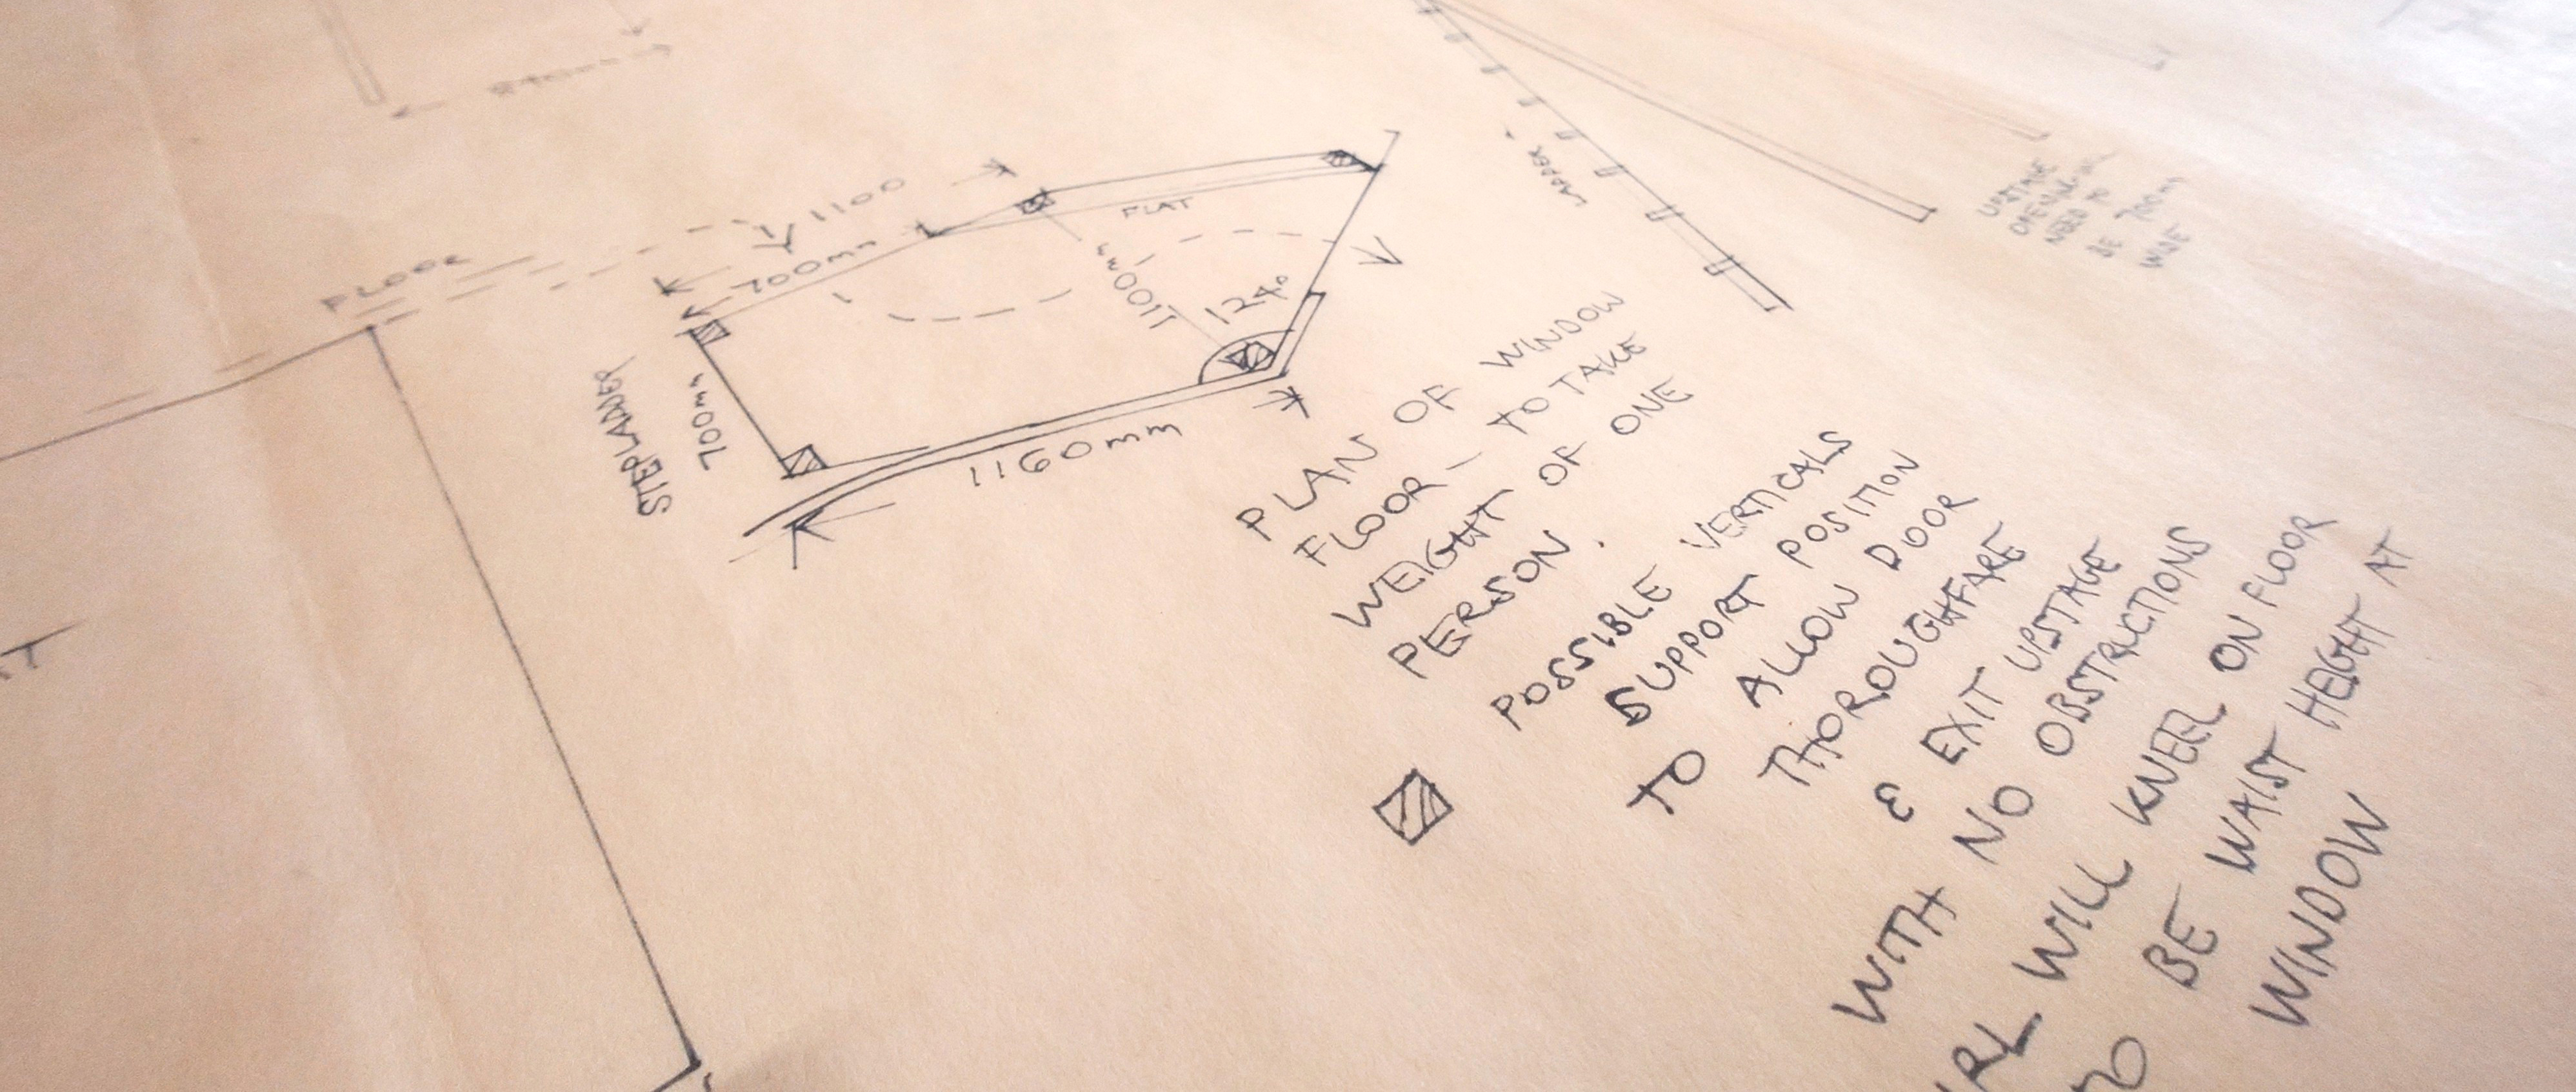 FLOOR
1100
700mm
FLAT
1100mm
124°
STEPLADDER
700mm
1160mm
LADDER
UPSTAGE
NEED TO
BE 700mm
WIDE
PLAN OF WINDOW
FLOOR – TO TAKE
WEIGHT OF ONE
PERSON.
POSSIBLE VERTICALS
SUPPORT POSITION
TO ALLOW DOOR
THOROUGHFARE
& EXIT UPSTAGE
WITH NO OBSTRUCTIONS
WILL KNEEL ON FLOOR
BE WAIST HEIGHT AT
WINDOW